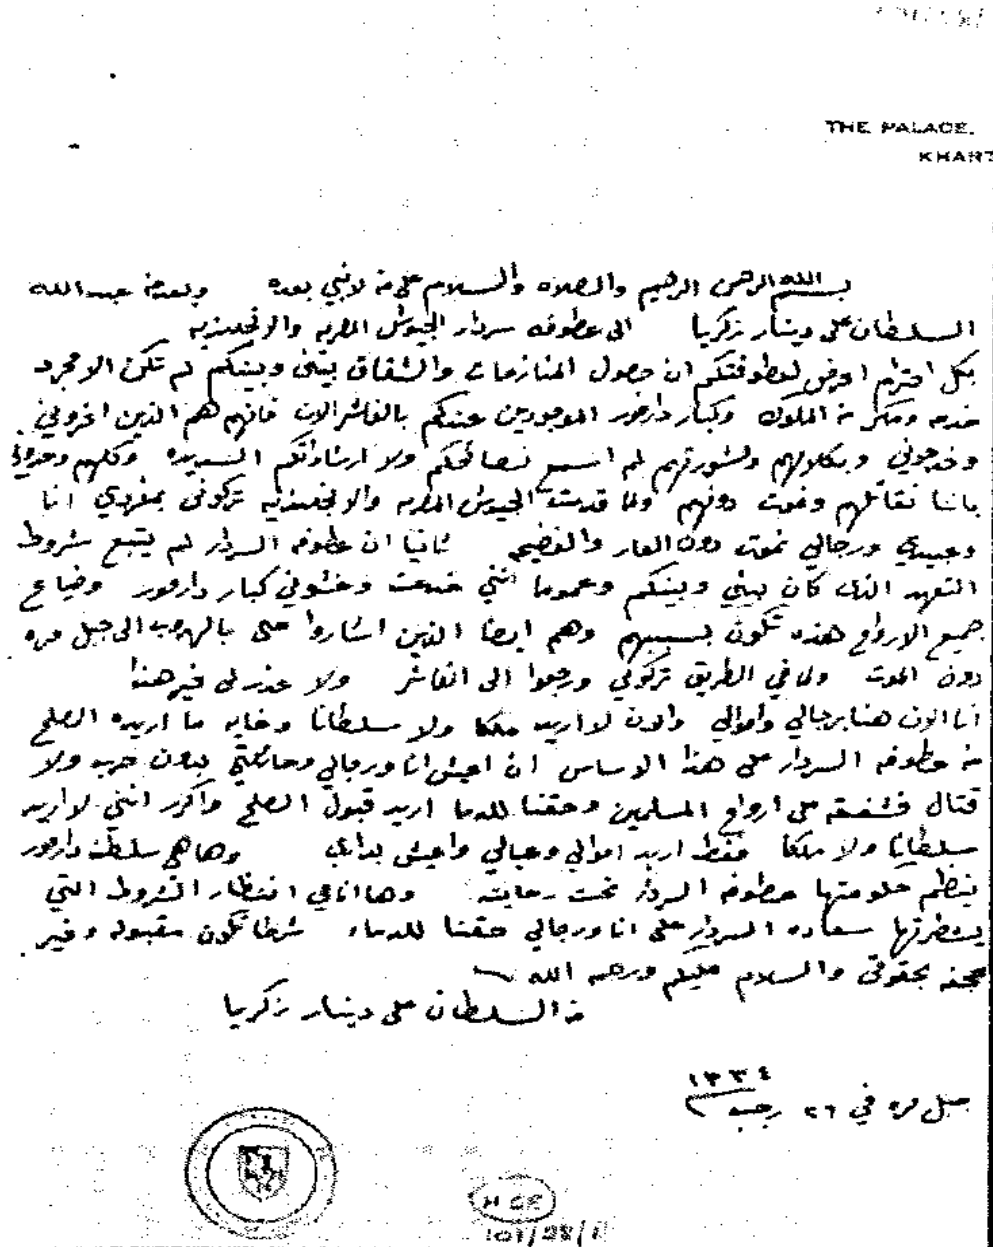 THE PALACE.
KHART
بسم الله الرحمن الرحيم والصلاه والسلام على من لا نبي بعده وبعد من عبد الله
السلطان على دينار زكريا الى عطوفه سردار الجيوش المصريه والانجليزيه
بكل احترام اعرض لعطوفتكم ان حصول المنازعات والشقاق بينى وبينكم لم تكن الا مجرد
خدعه ومكر من الملوك وكبار دارفور الموجودين عندكم بالفاشر الان فانهم هم الذين اخروني
وخدعوني وبكلامهم ومشورتهم لم اسمع نصائحكم ولا ارشاداتكم السديده وكلهم وعدوني
باننا نقاتلهم ونموت دونهم ولما قدمت الجيوش المصريه والانجليزيه تركوني بمفردي انا
وعبيدي ورجالي نموت دون العار والفضيحه ثانيا ان عطوفه السردار لم يتبع شروط
التعهد الذى كان بيني وبينكم وعموما انني خدعت وغشوني كبار دارفور وضياع
جميع الارواح هذه تكون بسببهم وهم ايضا الذين اشاروا على بالهروب الى جبل مره
دون الموت ولما في الطريق تركوني ورجعوا الى الفاشر ولا عذر لى غير هذا
انا الان هنا برجالي واموالي والان لا اريد ملكا ولا سلطانا وغايه ما اريده الصلح
من عطوفه السردار على هذا الاساس ان اعيش انا ورجالي وعائلتي بدون حرب ولا
قتال فشفقه على ارواح المسلمين وحقنا للدما اريد قبول الصلح واكرر انني لا اريد
سلطانا ولا ملكا فقط اريد اموالي وعيالي واعيش بداري وها هي سلطنة دارفور
ينظم حكومتها عطوفه السردار تحت رعايته وها انا في انتظار الشروط التي
يشترطها سعاده السردار على انا ورجالي حقنا للدماء شرطا تكون مقبوله وغير
مجحفه بحقوقى والسلام عليكم ورحمه الله
من السلطان على دينار زكريا
١٣٣٤
جبل مره في ٢٦ رجب
101/38/1